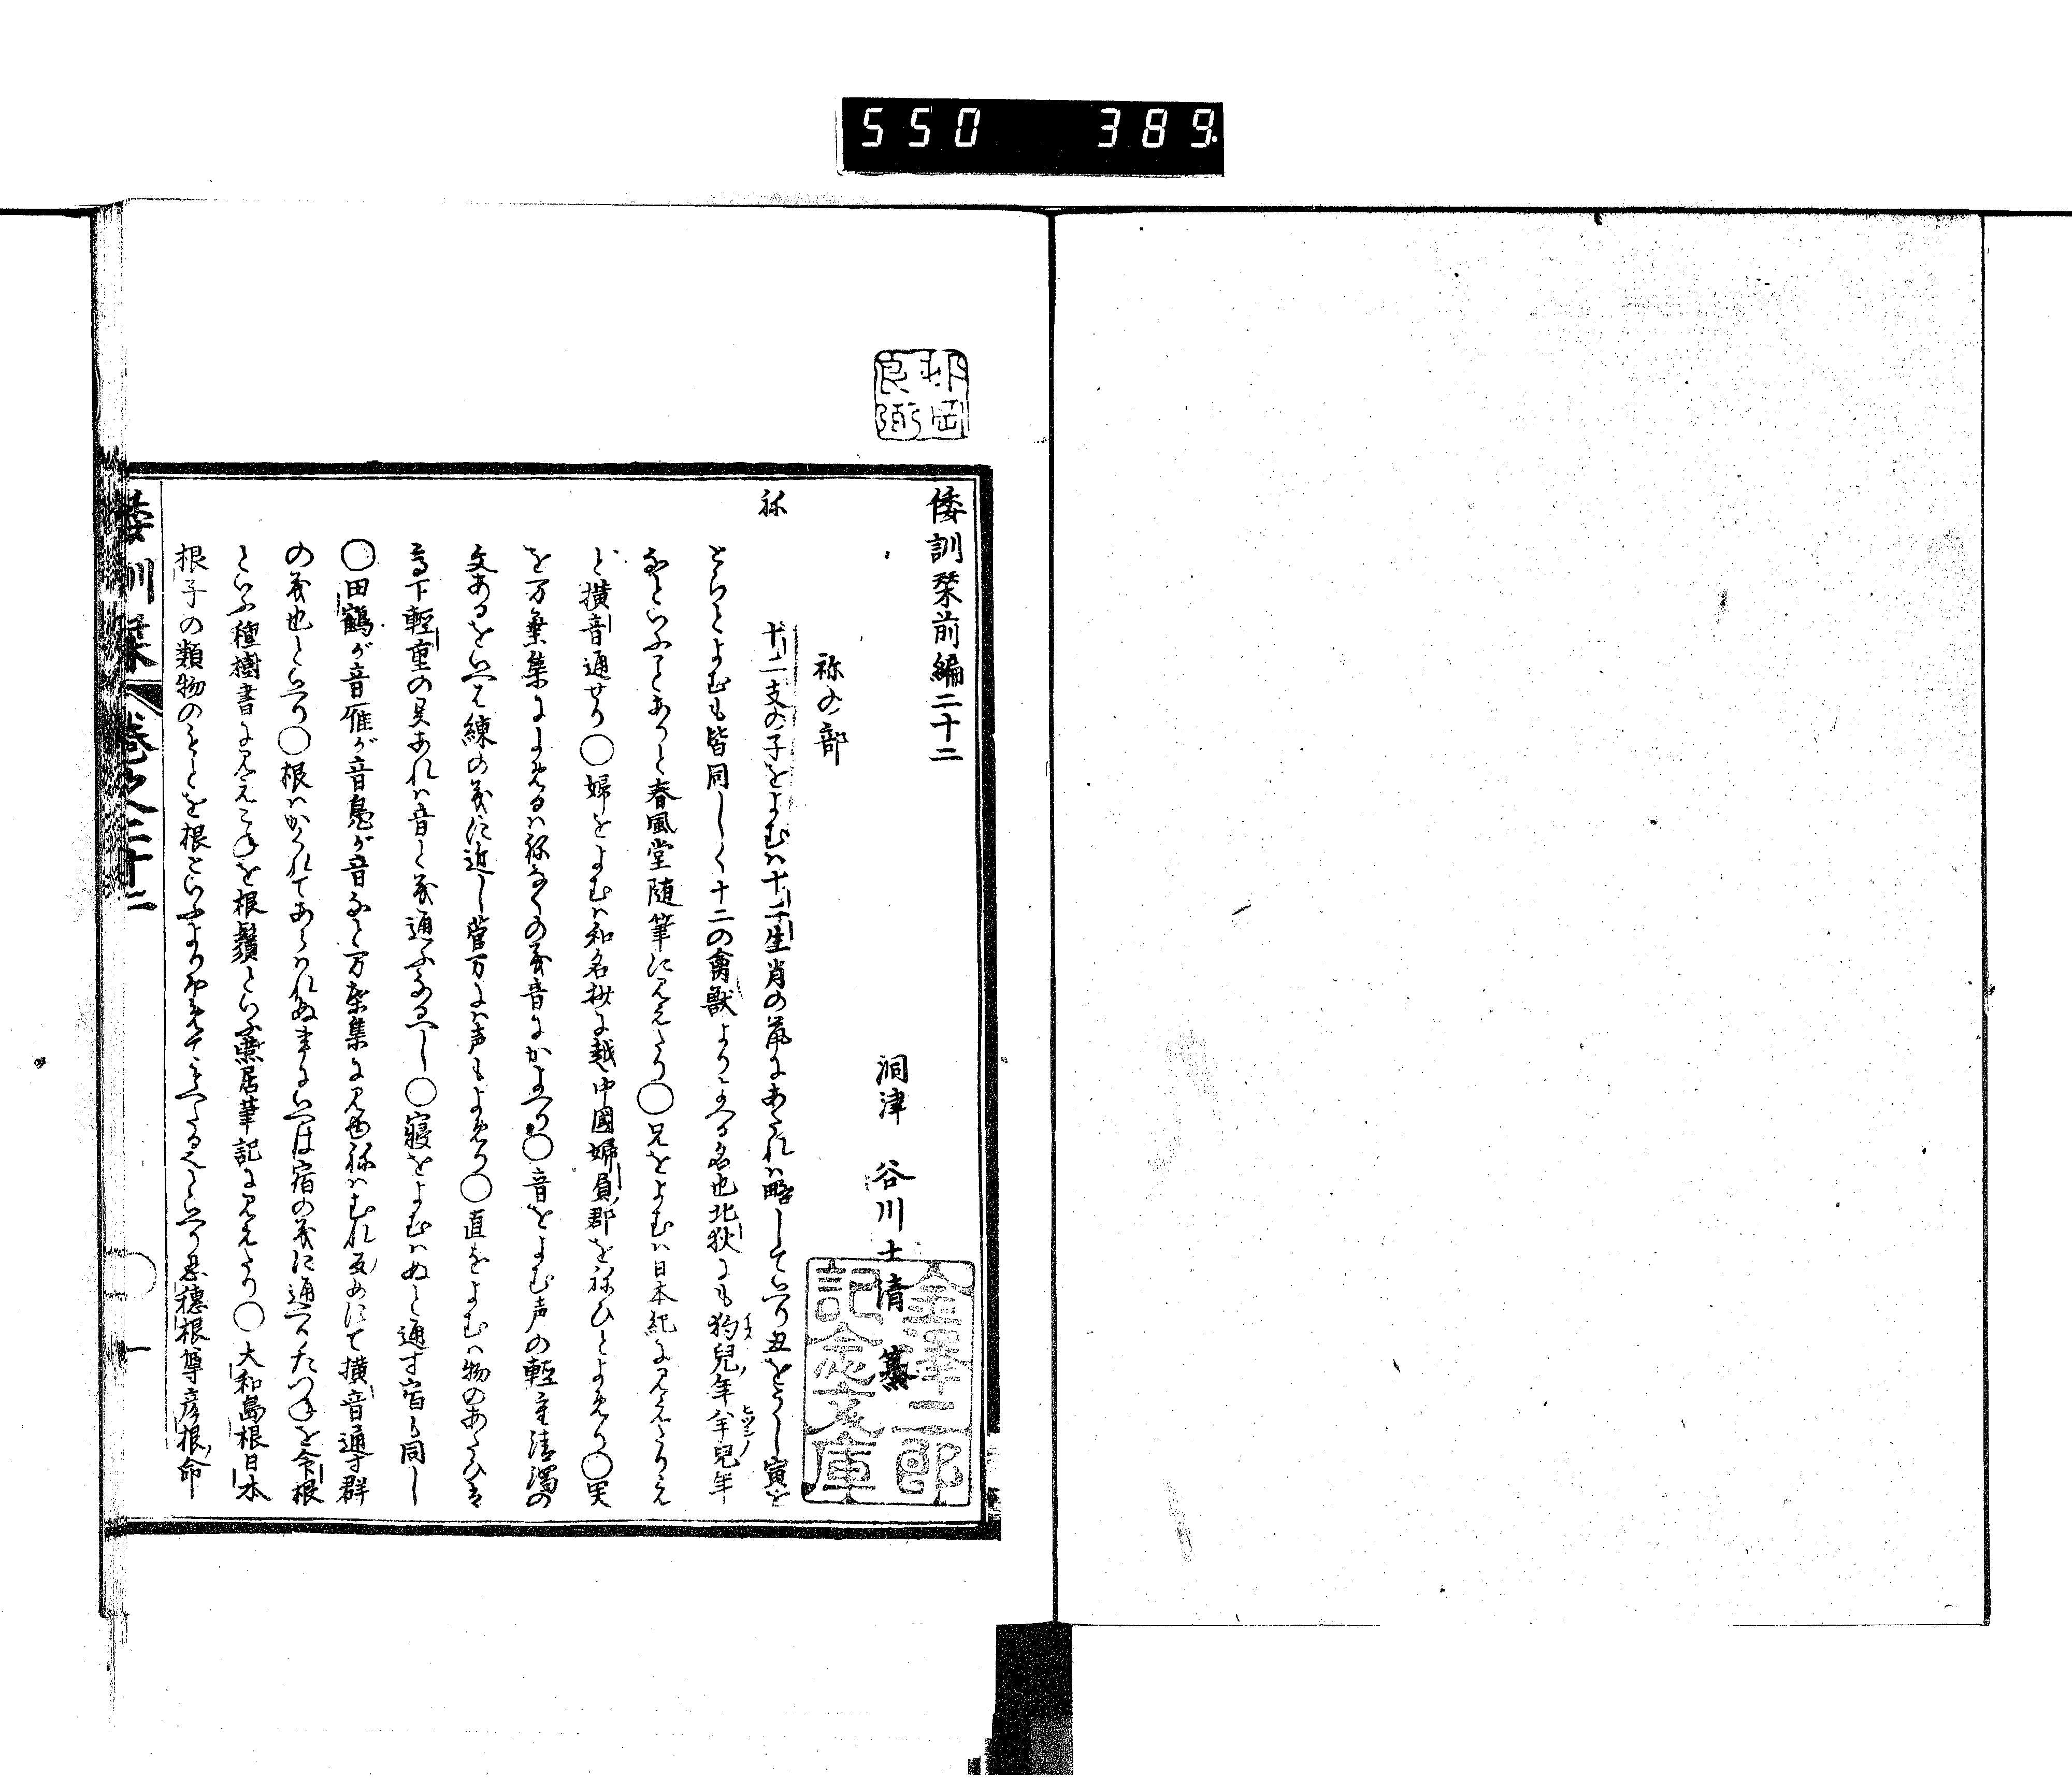 550 389
倭訓栞前編二十二
洞津 谷川士清 纂
祢の部
祢
十二支の子をよむハ十二生肖の鼠にあたれハ略していへり丑をうし寅を
とらとよむも皆同しく十二の禽獣よりいへる名也北狄にも狗児年羊児年
なといふことありと春風堂随筆に見えたり○兄をよむハ日本紀に見えたりえ
と横音通せり○婦をよむハ和名抄に越中國婦負郡を祢ひとよめり○哭
を万葉集によめるハ祢なくの義音にかよへり○音をよむ声の軽重清濁の
文あるをいへは練の義に近し菅万に声もよめり○直をよむハ物のあたひは
高下軽重の異あれハ音と義通ふなるへし○寝をよむハぬと通す宿も同し
○田鶴が音雁が音鳧が音なと万葉集に見ゆ祢ハむれ反めにて横音通す群
の義也といへり○根ハかくれてあらハれぬ
といふ種樹書に見えこれを根鬚といふ燕居筆記に見えたり○大和島根日本
根子の類物のもとを根といふより 忍穂根尊彦根命
倭訓栞 巻之二十二 一
朝岡良弼
金澤二郎記念文庫